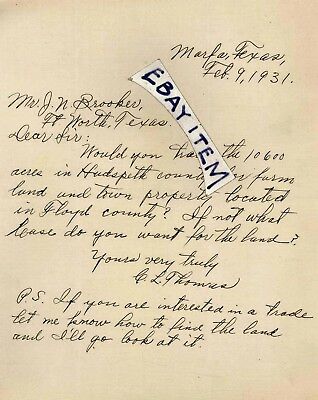 Marfa, Texas,
Feb. 9, 1931.
Mr. J. N. Brooker,
Ft Worth, Texas.
Dear Sir:
Would you the 10600
acres in Hudspeth county farm
land and town property located
in Floyd county? If not what
lease do you want for the land?
Yours very truly
C L Thomas
P.S. If you are interested in a trade
let me know how to find the land
and I'll go look at it.
EBAY ITEM